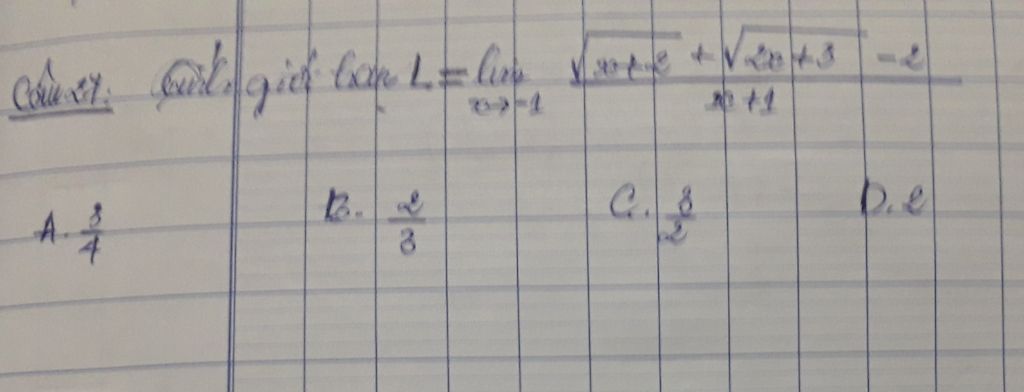 Câu 27: Tính giới hạn L = lim x→-1 (√(x+2) + √(2x+3) - 2)/(x+1)
A. 3/4 B. 2/3 C. 3/2 D. 2